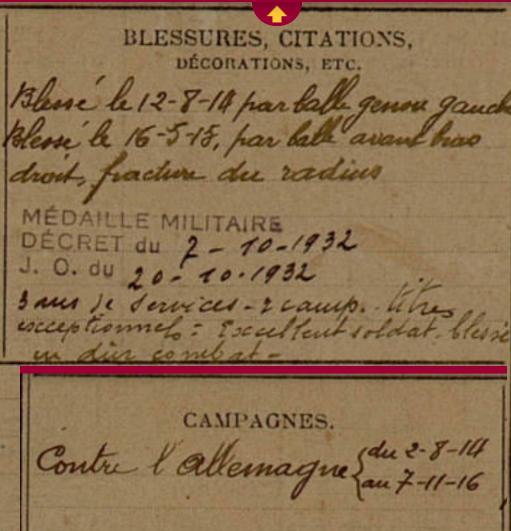 BLESSURES, CITATIONS,
DÉCORATIONS, ETC.
Blessé le 12-8-14 par balle genou gauche
Blessé le 16-5-15, par balle avant bras
droit, fracture du radius
MÉDAILLE MILITAIRE
DÉCRET du 7-10-1932
J. O. du 20-10-1932
3 ans de services - 2 camp. titres
exceptionnels : Excellent soldat. blessé
en dur combat -
CAMPAGNES.
Contre l'allemagne { du 2-8-14
au 7-11-16